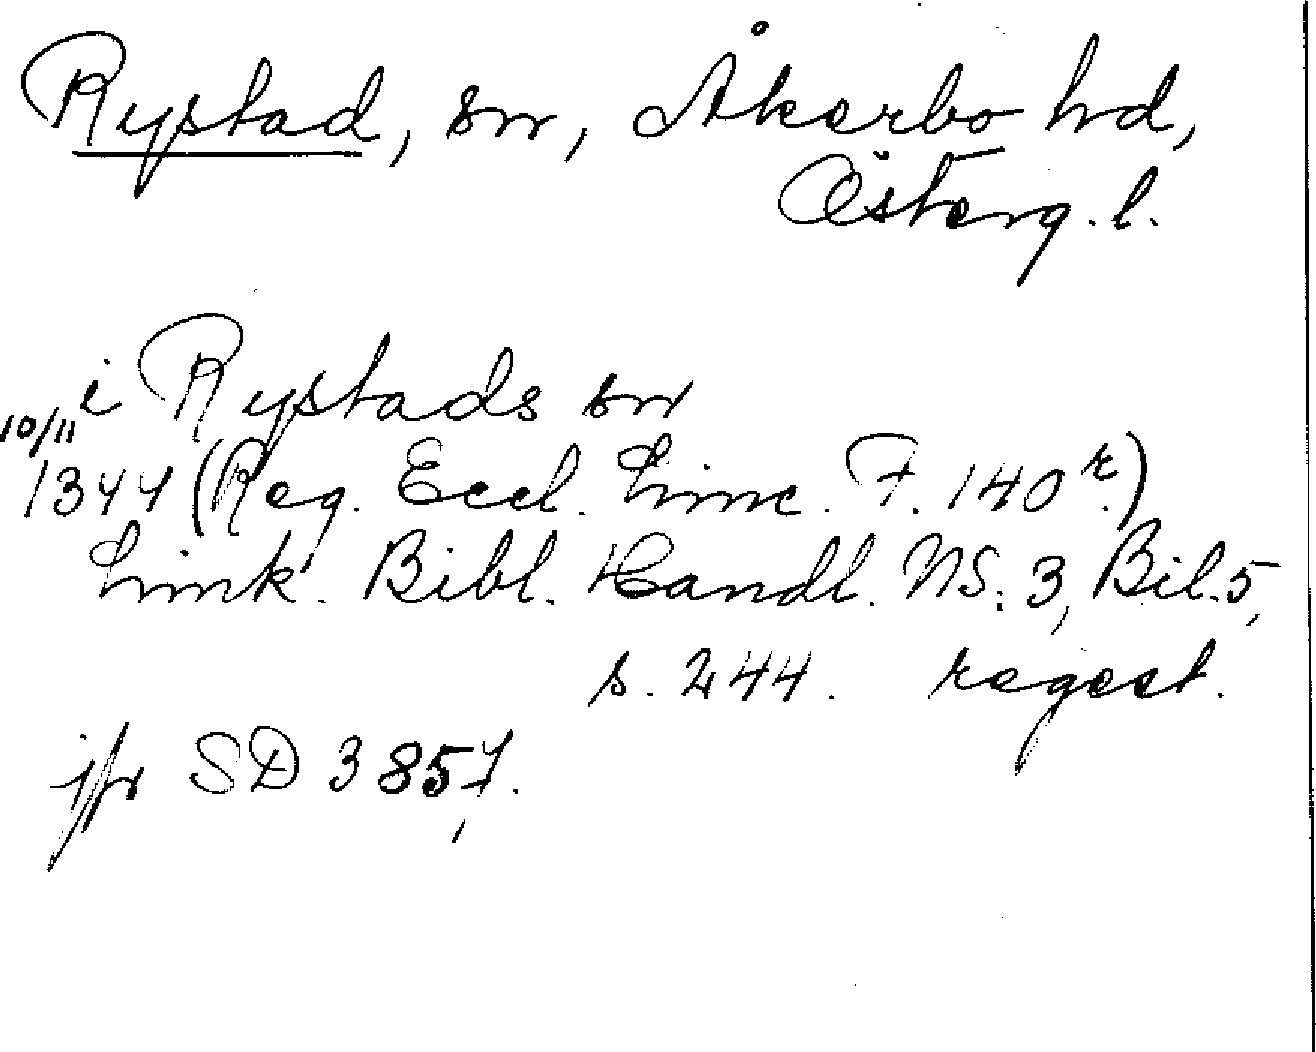 Rystad, sn, Åkerbo hd,
Österg. l.
i Rystads sn
10/11
1344 (Reg. Eccl. Linc. F. 140r.)
Link. Bibl. Handl. NS. 3, Bil. 5,
s. 244. regest.
jfr SD 3 857.